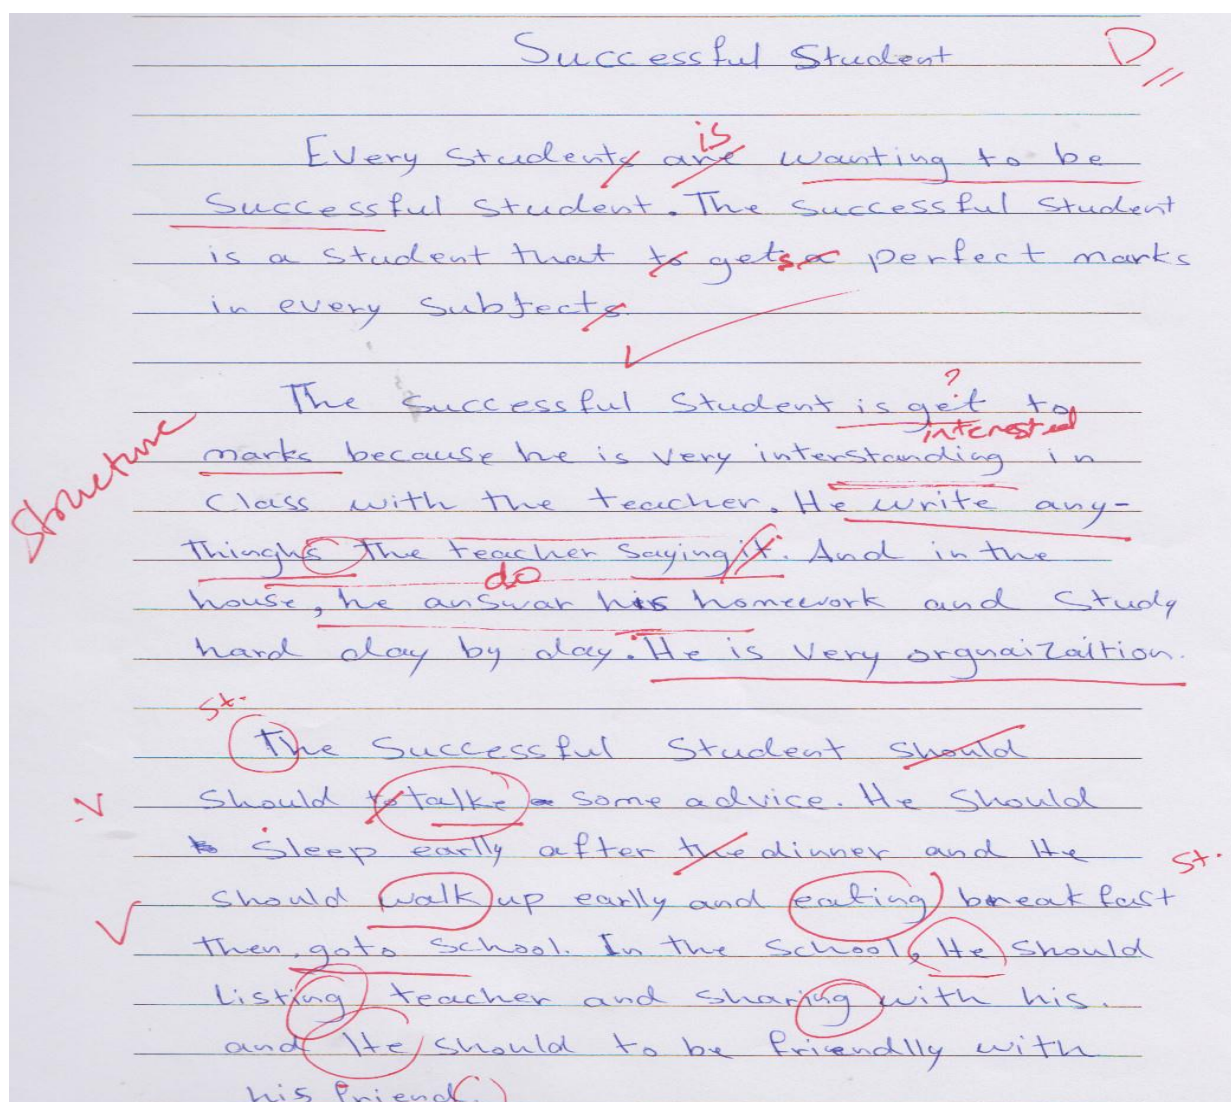 Successful Student D
is
Every students are wanting to be
Successful student. The Successful student
is a student that to gets a perfect marks
in every Subjects.
?
The successful Student is get to
interested
Structure
marks because he is very interstanding in
Class with the teacher. He write any-
thinghs the teacher saying it. And in the
do
house, he answar his homework and Study
hard day by day. He is Very orgnaizaition.
St.
The Successful Student should
Should to talke some advice. He Should
Sleep earlly after the dinner and He
St.
should walk up earlly and eating breakfast
then, goto School. In the School, He should
listing teacher and sharing with his.
and He should to be friendlly with
his friend.